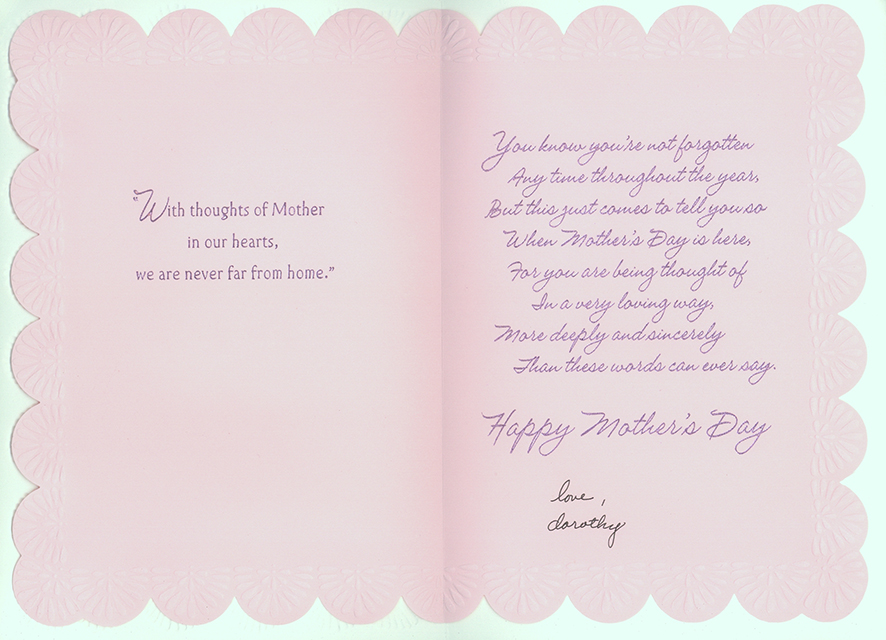 "With thoughts of Mother
in our hearts,
we are never far from home."
You know you're not forgotten
Any time throughout the year,
But this just comes to tell you so
When Mother's Day is here,
For you are being thought of
In a very loving way,
More deeply and sincerely
Than these words can ever say.
Happy Mother's Day
love,
dorothy